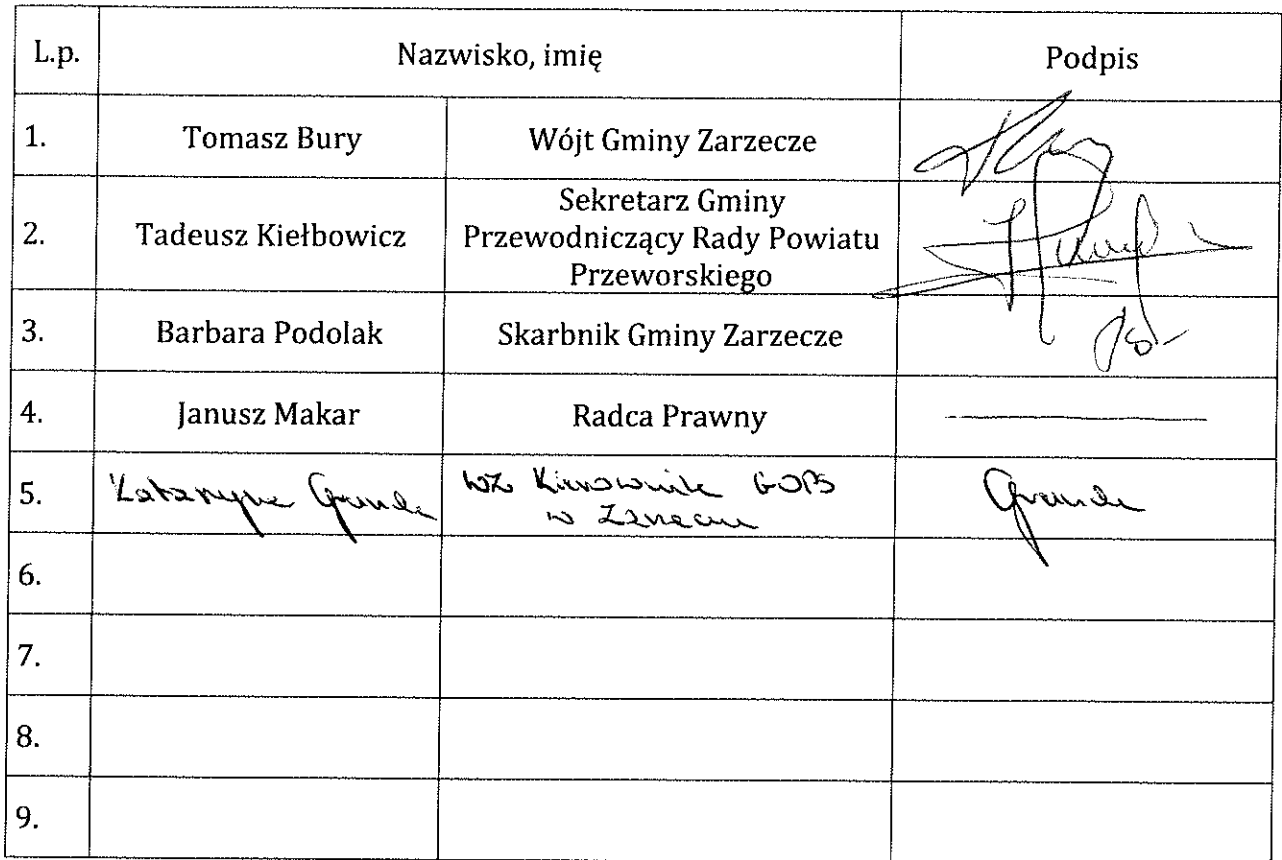 L.p. Nazwisko, imię Podpis
1. Tomasz Bury Wójt Gminy Zarzecze
2. Tadeusz Kiełbowicz Sekretarz Gminy
Przewodniczący Rady Powiatu
Przeworskiego
3. Barbara Podolak Skarbnik Gminy Zarzecze
4. Janusz Makar Radca Prawny
5. Katarzyna WZ Kierownik
w Zarzeczu
6.
7.
8.
9.